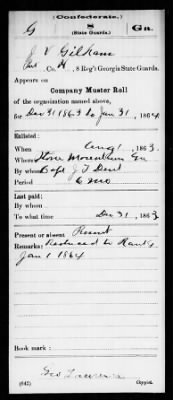 (Confederate.)
G 8 Ga.
(State Guards.)
J V Gilham
Co. H, 8 Reg't Georgia State Guards.
Appears on
Company Muster Roll
of the organization named above,
for Dec 31 1863 to Jan 31, 1864
Enlisted:
When Aug 1, 1863.
Where Stone Mountain Ga
By whom Capt J T Dent
Period 6 Mo
Last paid:
By whom
To what time Dec 31, 1863
Present or absent Present
Remarks: Reduced to Ranks
Jan 1 1864
Book mark:
Geo
(642) Copyist.